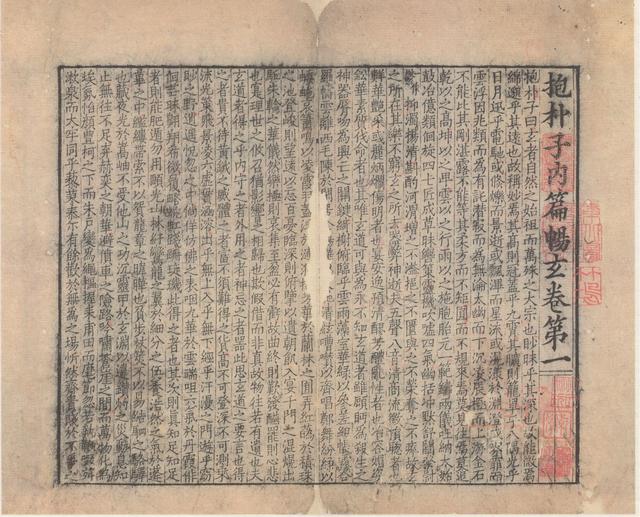 抱朴子內篇暢玄卷第一
抱朴子曰玄者自然之始祖而萬殊之大宗也眇昧乎其深也故稱微焉
綿邈乎其遠也故稱妙焉其高則冠蓋乎九霄其曠則籠罩乎八隅光乎
日月迅乎電馳或倏爍而景逝或飄滭而星流或滉漾於淵澄或雰霏而
雲浮因兆類而為有託潛寂而為無淪太幽而下沉凌辰極而上游金石
不能比其剛湛露不能等其柔方而不矩圓而不規來焉莫見往焉莫追
乾以之高坤以之卑雲以之行雨以之施胞胎元一範鑄兩儀吐納太始
鼓冶億類佪旋四七匠成草昧轡策靈機吹噓四氣幽括沖默舒闡粲尉
抑濁揚清斟酌河渭增之不溢挹之不匱與之不榮奪之不瘁故玄
之所在其樂不窮玄之所去器弊神逝夫五聲八音清商流徵損聰者也
鮮華艷采彧麗炳爛傷明者也宴安逸豫清醪芳醴亂性者也冶容媚姿
鉛華素質伐命者也其唯玄道可與為永不知玄道者雖顧眄為殺生之
神器脣吻為興亡之關鍵綺榭俯臨乎雲雨藻室華綠以參差組帳霧合
羅幬雲離西毛陳於閒房金觴華以交馳清絃嘈囋以齊唱鄭舞紛綵以
哀簫鳴以凌霞羽蓋浮於漣漪掇芳華於蘭林之囿弄紅葩於積珠
之池登峻則望遠以忘百憂臨深則俯擥以遺朝飢入宴千門之混熀出
驅朱輪之華儀然樂極則哀集至盈必有虧故曲終則歎發讌罷則心悲
也寔理世之攸召猶影響之相歸也彼假借而非真故物往若有遺也夫
玄道者得之乎內守之者外用之者神忘之者器此思玄道之要言也得
之者貴不待黃鉞之威體之者富不須難得之貨高不可登深不可測乘
流光策飛景凌六虛貫涵溶出乎無上入乎無下經乎汗漫之門遊乎窈
眇之野逍遙恍惚之中倘佯彷彿之表咽九華於雲端咀六氣於丹霞徘
徊茫昧翱翔希微履略蜿虹踐跚旋璣此得之者也其次則真知足知足
者則能肥遁勿用頤光山林紆鸞龍之翼於細分之伍養浩然之氣於蓬
蓽之中繿縷帶索不以貿龍章之暐曄也負步杖筴不以易結駟之駱驛
也藏夜光於嵩岫不受他山之攻沉靈甲於玄淵以違鑽灼之災動息知
止無往不足棄赫奕之朝華避僨車之險路吟嘯蒼崖之間而萬物化為
埃氛怡顏豐柯之下而朱戶變為繩樞握耒甫田而麾節忽若執鞭啜荈
漱泉而太牢同乎藜藿泰尒有餘歡於無為之場忻然齊貴賤於不爭之